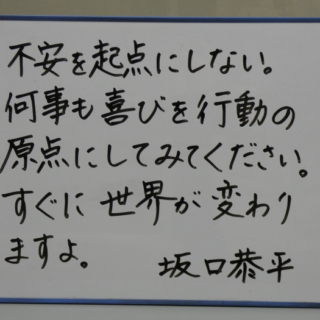 不安を起点にしない。
何事も喜びを行動の
原点にしてみてください。
すぐに世界が変わり
ますよ。 坂口恭平